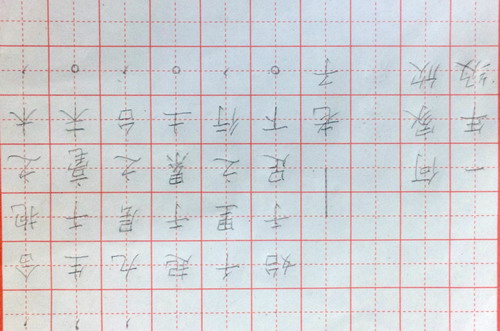 合抱之木，
生于毫末。
九层之台，
起于累土。
千里之行，
始于足下。
——老子
何家
一年级